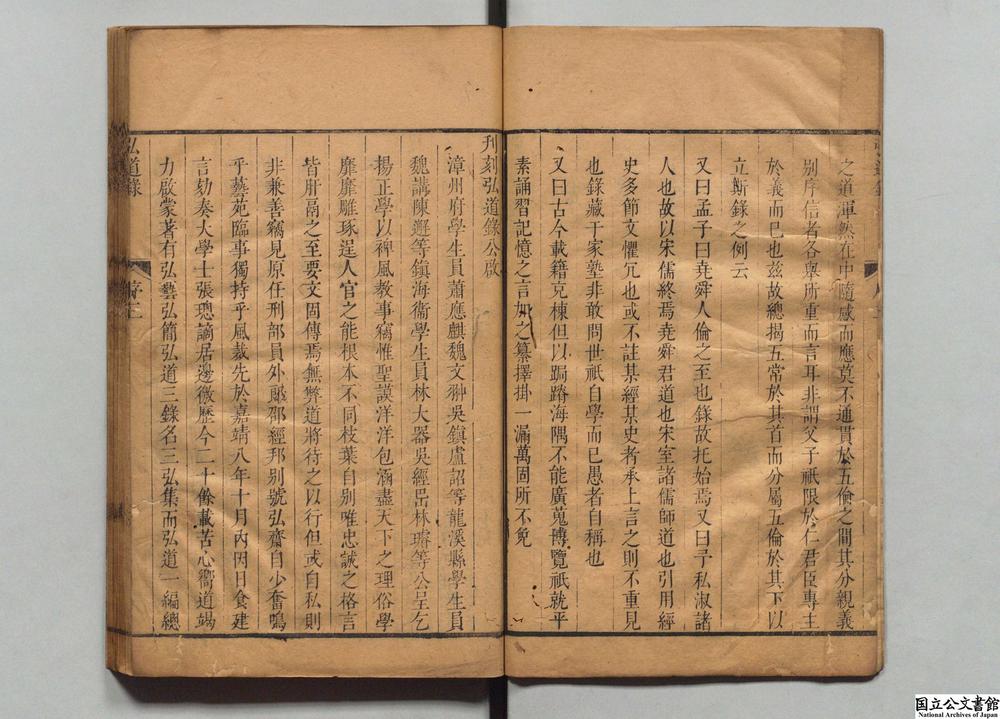 之道渾然在中隨感而應莫不通貫於五倫之間其分親義
別序信者各舉所重而言耳非謂父子祇限於仁君臣專主
於義而已也茲故總揭五常於其首而分屬五倫於其下以
立斯錄之例云
又曰孟子曰堯舜人倫之至也錄故托始焉又曰予私淑諸
人也故以宋儒終焉堯舜君道也宋室諸儒師道也引用經
史多節文懼冗也或不註某經某史者承上言之則不重見
也錄藏于家塾非敢問世祇自學而已愚者自稱也
又曰古今載籍充棟但以跼蹐海隅不能廣蒐博覽祇就平
素誦習記憶之言加之纂擇掛一漏萬固所不免
刋刻弘道錄公啟
漳州府學生員蕭應麒魏文翀吳鎮盧詔等龍溪縣學生員
魏講陳邂等鎮海衞學生員林大器吳經岊林璿等公呈乞
揚正學以裨風教事竊惟聖謨洋洋包涵盡天下之理俗學
靡靡雕琢逞人官之能根本不同枝葉自別唯忠誠之格言
皆肝鬲之至要文固傳焉無弊道將待之以行但或自私則
非兼善竊見原任刑部員外郎邵經邦別號弘齋自少奮鳴
乎藝苑臨事獨持乎風裁先於嘉靖八年十月內因日食建
言劾奏大學士張璁謫居邊徼歷今二十餘載苦心嚮道竭
力啟蒙著有弘藝弘簡弘道三錄名三弘集而弘道一編總
弘道錄
序二
国立公文書館
National Archives of Japan